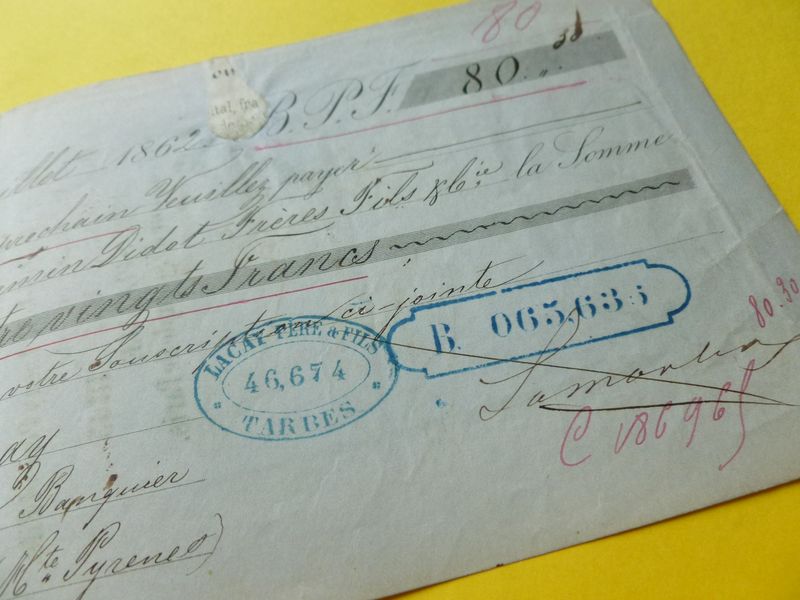 80
ou
ital, fra
B.P.F. 80 "
illet 1862
prochain Veuillez payer
min Didot Frères Fils & Cie la Somme
tre vingts Francs
votre Souscription ci-jointe
LACAY PÈRE & FILS
46,674
TARBES
B. 065,635
80.30
(18696)
ay
Banquier
Hte Pyrenees)